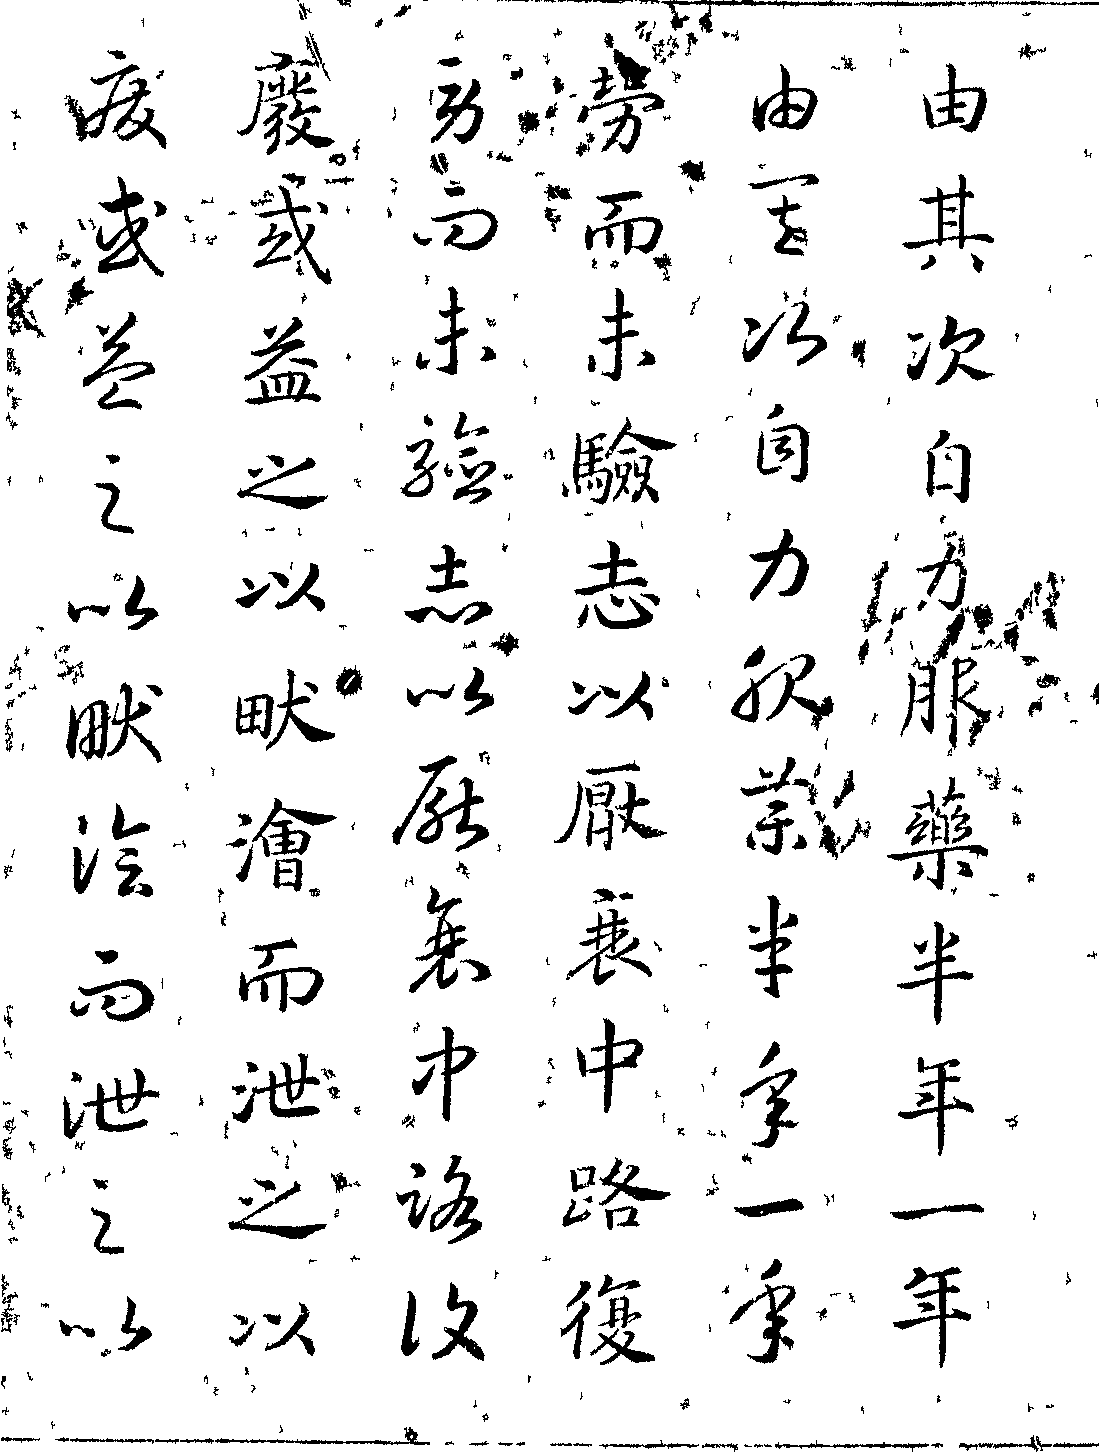 由其次自力服藥半年一年
由其次自力服藥半年一年
勞而未驗志以厭衰中路復
勞而未驗志以厭衰中路復
廢或益之以畎澮而泄之以
廢或益之以畎澮而泄之以